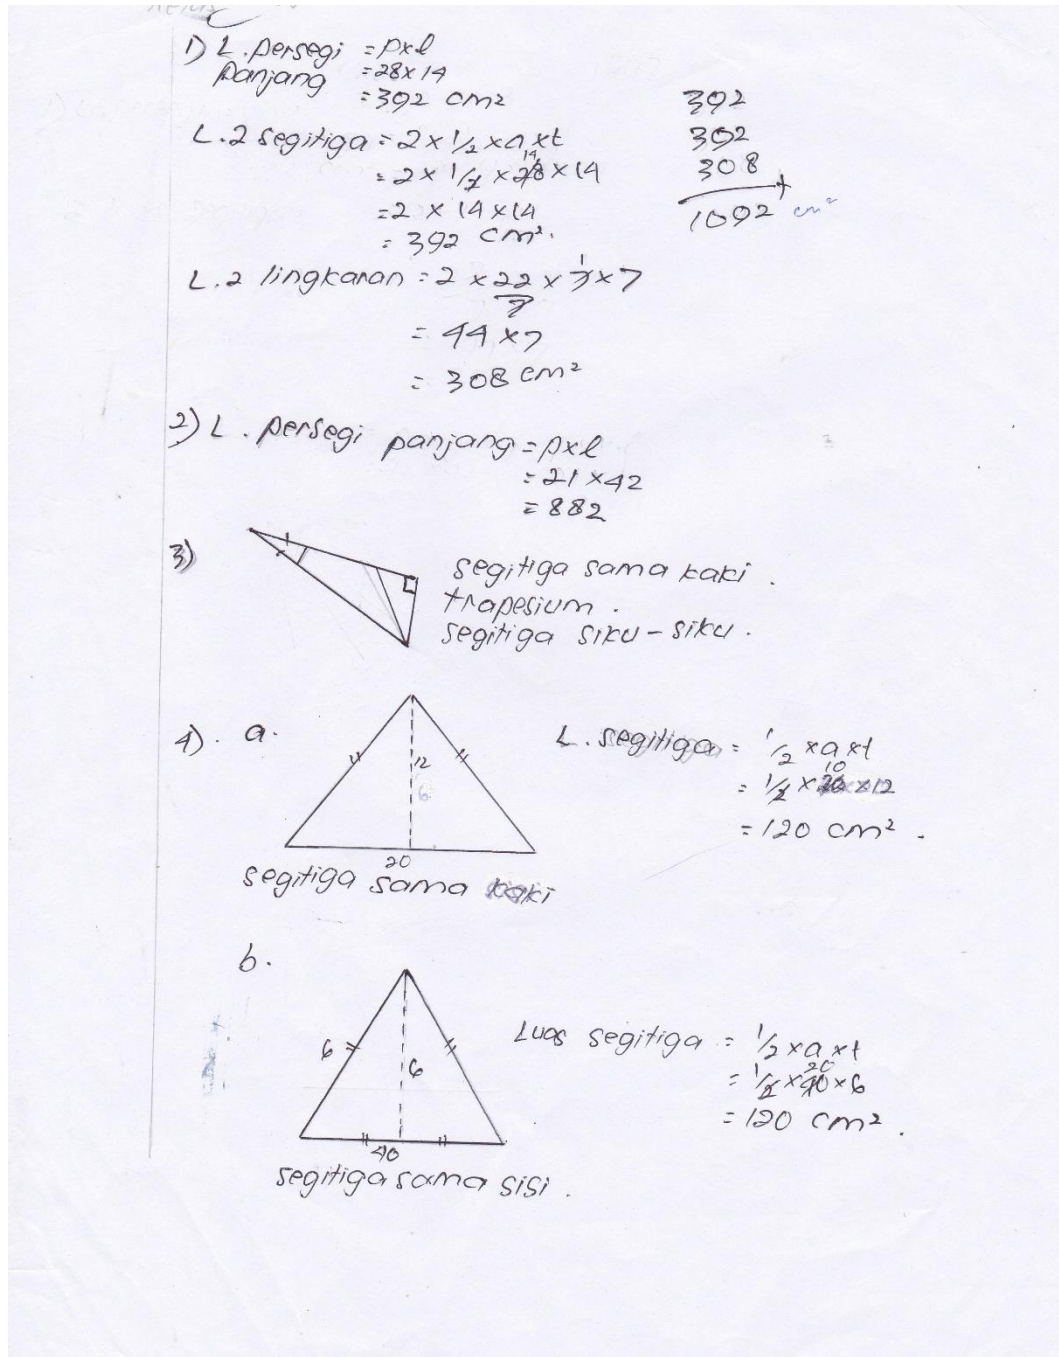 1) L. persegi = pxl
panjang = 28 x 14
= 392 cm2
L. 2 segitiga = 2 x 1/2 x a x t
= 2 x 1/2 x 28 14 x 14
= 2 x 14 x 14
= 392 cm².
L. 2 lingkaran = 2 x 22/7 x 7 1 x 7
= 44 x 7
= 308 cm²
392
392
308
+
1092 cm²
2) L. persegi panjang = pxl
= 21 x 42
= 882
3)
segitiga sama kaki.
trapesium.
segitiga siku-siku.
4). a.
12
6
20
segitiga sama kaki
L. segitiga = 1/2 x a x t
= 1/2 x 20 10 x 12
= 120 cm².
b.
6
6
40
segitiga sama sisi.
Luas segitiga = 1/2 x a x t
= 1/2 x 40 20 x 6
= 120 cm².